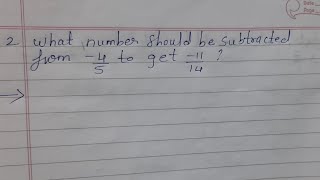 2 What number should be subtracted
from -4/5 to get -11/14 ?